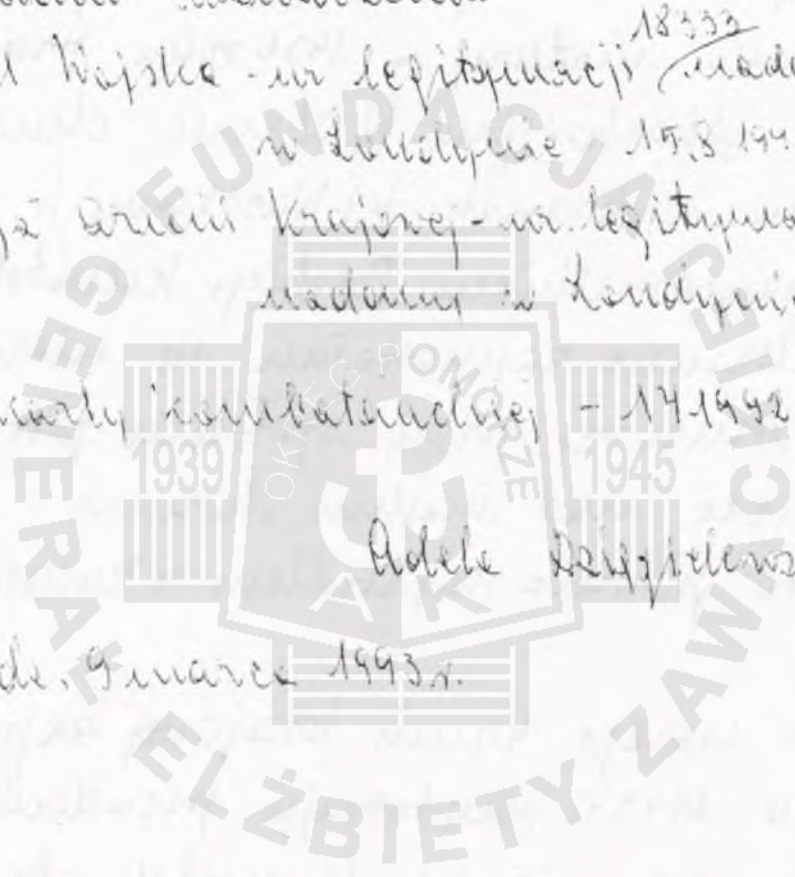 18333
l Wojska - nr legitymacji nada
w Londynie 15.8 194
ją Armii Krajowej - nr. legityma
nadany w Londynie
karty kombatanckiej - 171492
Adela
de. 9 marca 1993 r.
FUNDACJA GENERAŁ ELŻBIETY ZAWACKIEJ
OKRĘG POMORZE
1939 1945
AK